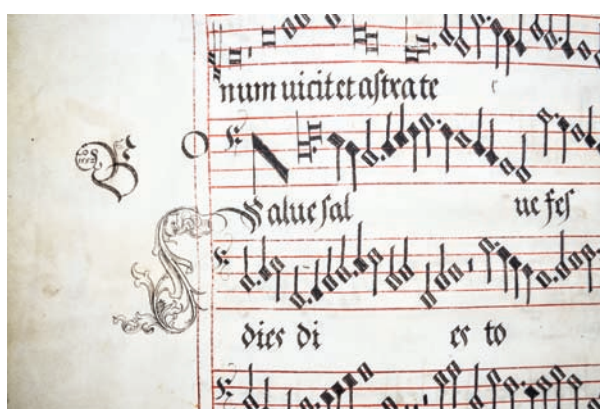 num uicit et astra te
Salue sal ue fes
dies di es to